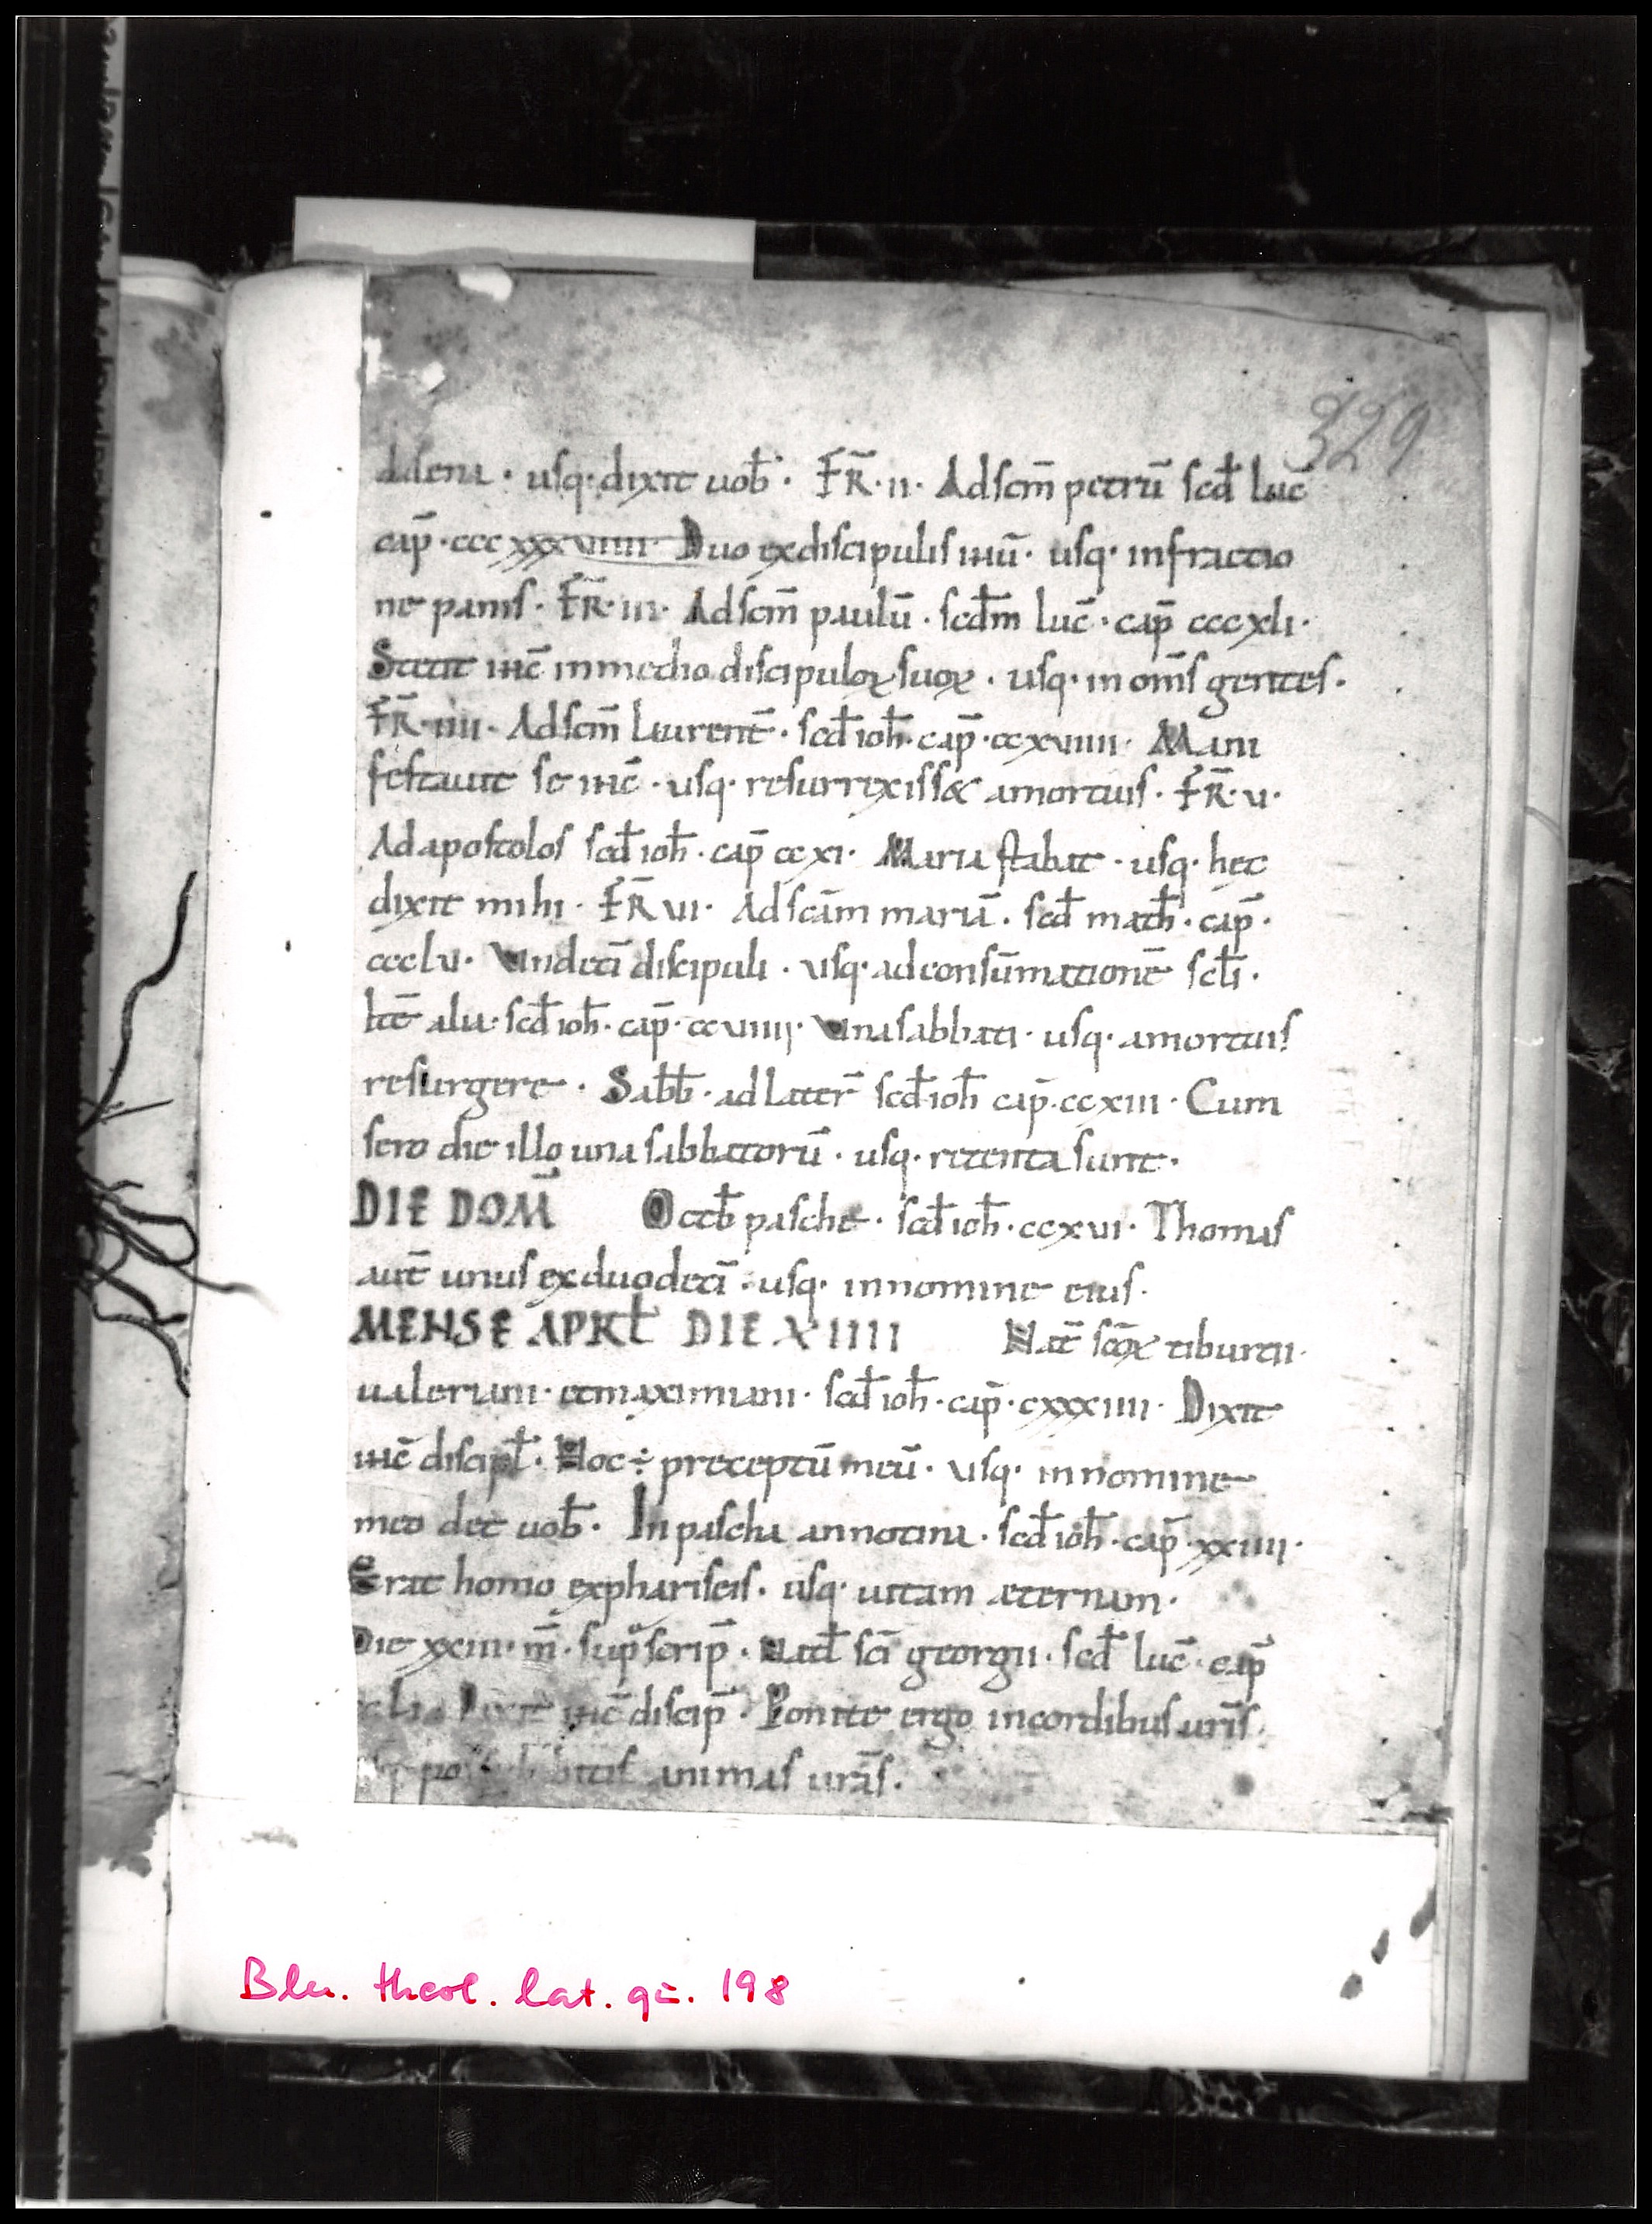 329
dalena · usq; dixit uob̄ · FR̄ · ii · Ad scm̄ petrū scd̄ luc̄
cap̄ · ccc xxxviiii · Duo ex discipulis ihū · usq · in fractio
ne panis · FR̄ · iii · Ad scm̄ paulū · scdm̄ luc̄ · cap̄ cccxli ·
Stetit ihc̄ in medio discipuloꝝ suoꝝ · usq · in om̄s gentes ·
FR̄ · iiii · Ad scm̄ laurent̄ · scd̄ ioh̄ · cap̄ · ccxviiii · Mani
festauit se ihc̄ · usq · resurrexiss& a mortuis · FR̄ · v ·
Ad apostolos scd̄ ioh̄ · cap̄ ccxi · Maria stabat · usq · hec
dixit mihi · FR̄ vi · Ad scām mariā · scd̄ math̄ · cap̄ ·
ccclv · Undeci̅ discipuli · usq · ad consūmationē scl̄i ·
Itē alia · scd̄ ioh̄ · cap̄ · ccviiii · Una sabbati · usq · a mortuis
resurgere · Sabb̄ · ad later̄ scd̄ ioh̄ cap̄ · ccxiii · Cum
sero die illo una sabbatorū · usq · retenta sunt ·
DIE DOM̄ Octb̄ pasche · scd̄ ioh̄ · ccxvi · Thomas
aut̄ unus ex duodeci̅ · usq · in nomine eius ·
MENSE APRL̄ DIE XIIII Nat̄ scōꝝ tiburtii ·
ualeriani · et maximiani · scd̄ ioh̄ · cap̄ · cxxxiiii · Dixit
ihc̄ discipl̄ · Hoc ÷ preceptū meū · usq · in nomine
meo det uob̄ · In pascha annotina · scd̄ ioh̄ · cap̄ · xxiiii ·
Erat homo ex phariseis · usq · uitam æternam ·
Die xxiii · m̄ · sup̄scrip̄ · Natl̄ scī georgii · scd̄ luc̄ · cap̄
Dixit ihc̄ discip̄ · Ponite ergo in cordibus ur̄is ·
animas urās ·
Bln. theol. lat. qu. 198